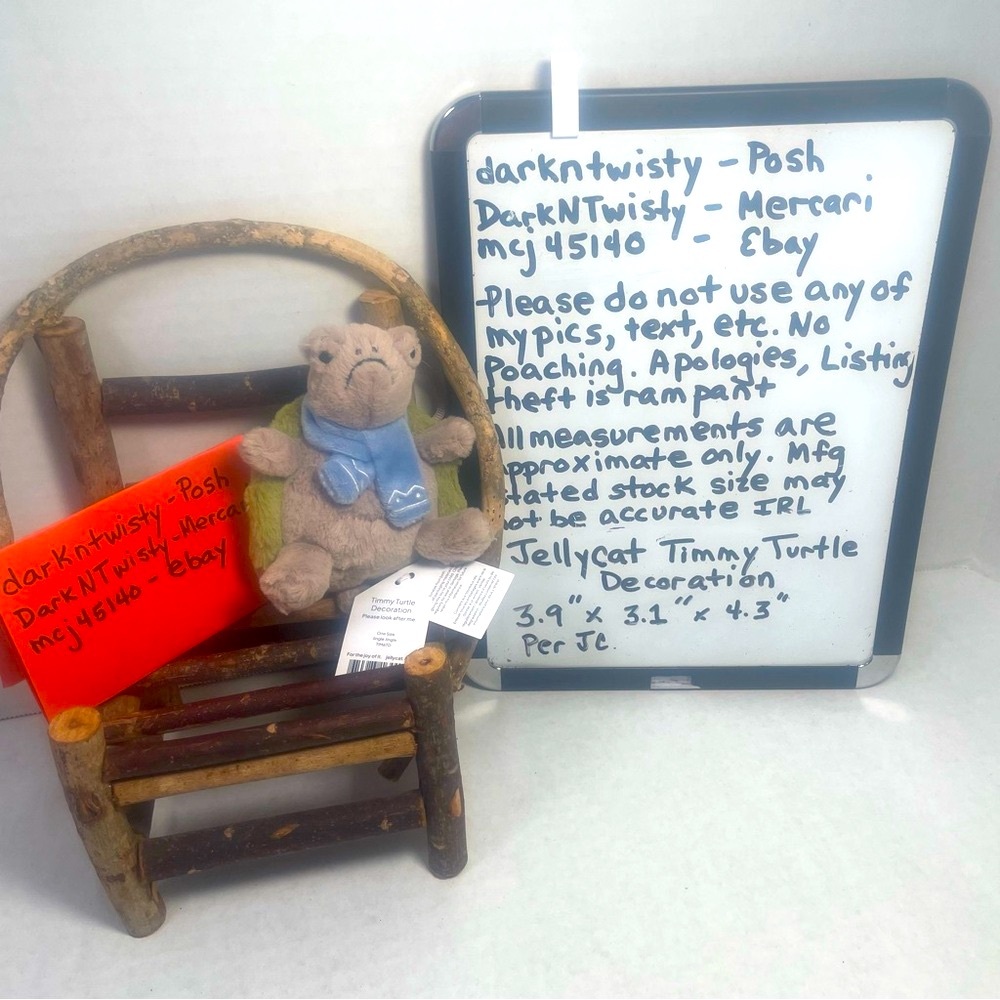 darkntwisty - Posh
DarkNTwisty - Mercari
mcj45140 - Ebay
Please do not use any of
my pics, text, etc. No
Poaching. Apologies, Listing
theft is rampant
All measurements are
approximate only. Mfg
stated stock size may
not be accurate IRL
Jellycat Timmy Turtle
Decoration
3.9" x 3.1" x 4.3"
Per JC.
darkntwisty - Posh
DarkNTwisty - Mercari
mcj45140 - ebay
Timmy Turtle
Decoration
Please look after me
One Size
For the joy of it. jellycat